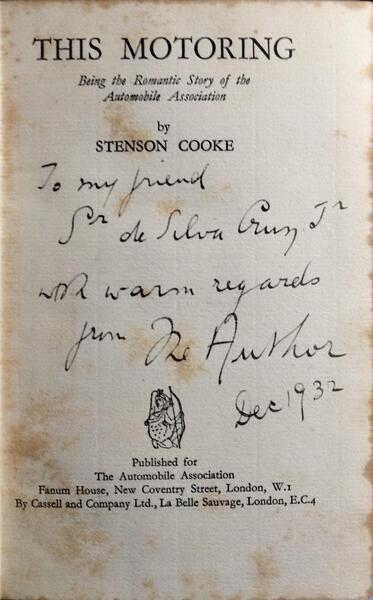 THIS MOTORING
Being the Romantic Story of the
Automobile Association
by
STENSON COOKE
To my friend
Sr de Silva Cruz Jr
with warm regards
from The Author
Dec 1932
Published for
The Automobile Association
Fanum House, New Coventry Street, London, W.1
By Cassell and Company Ltd., La Belle Sauvage, London, E.C.4